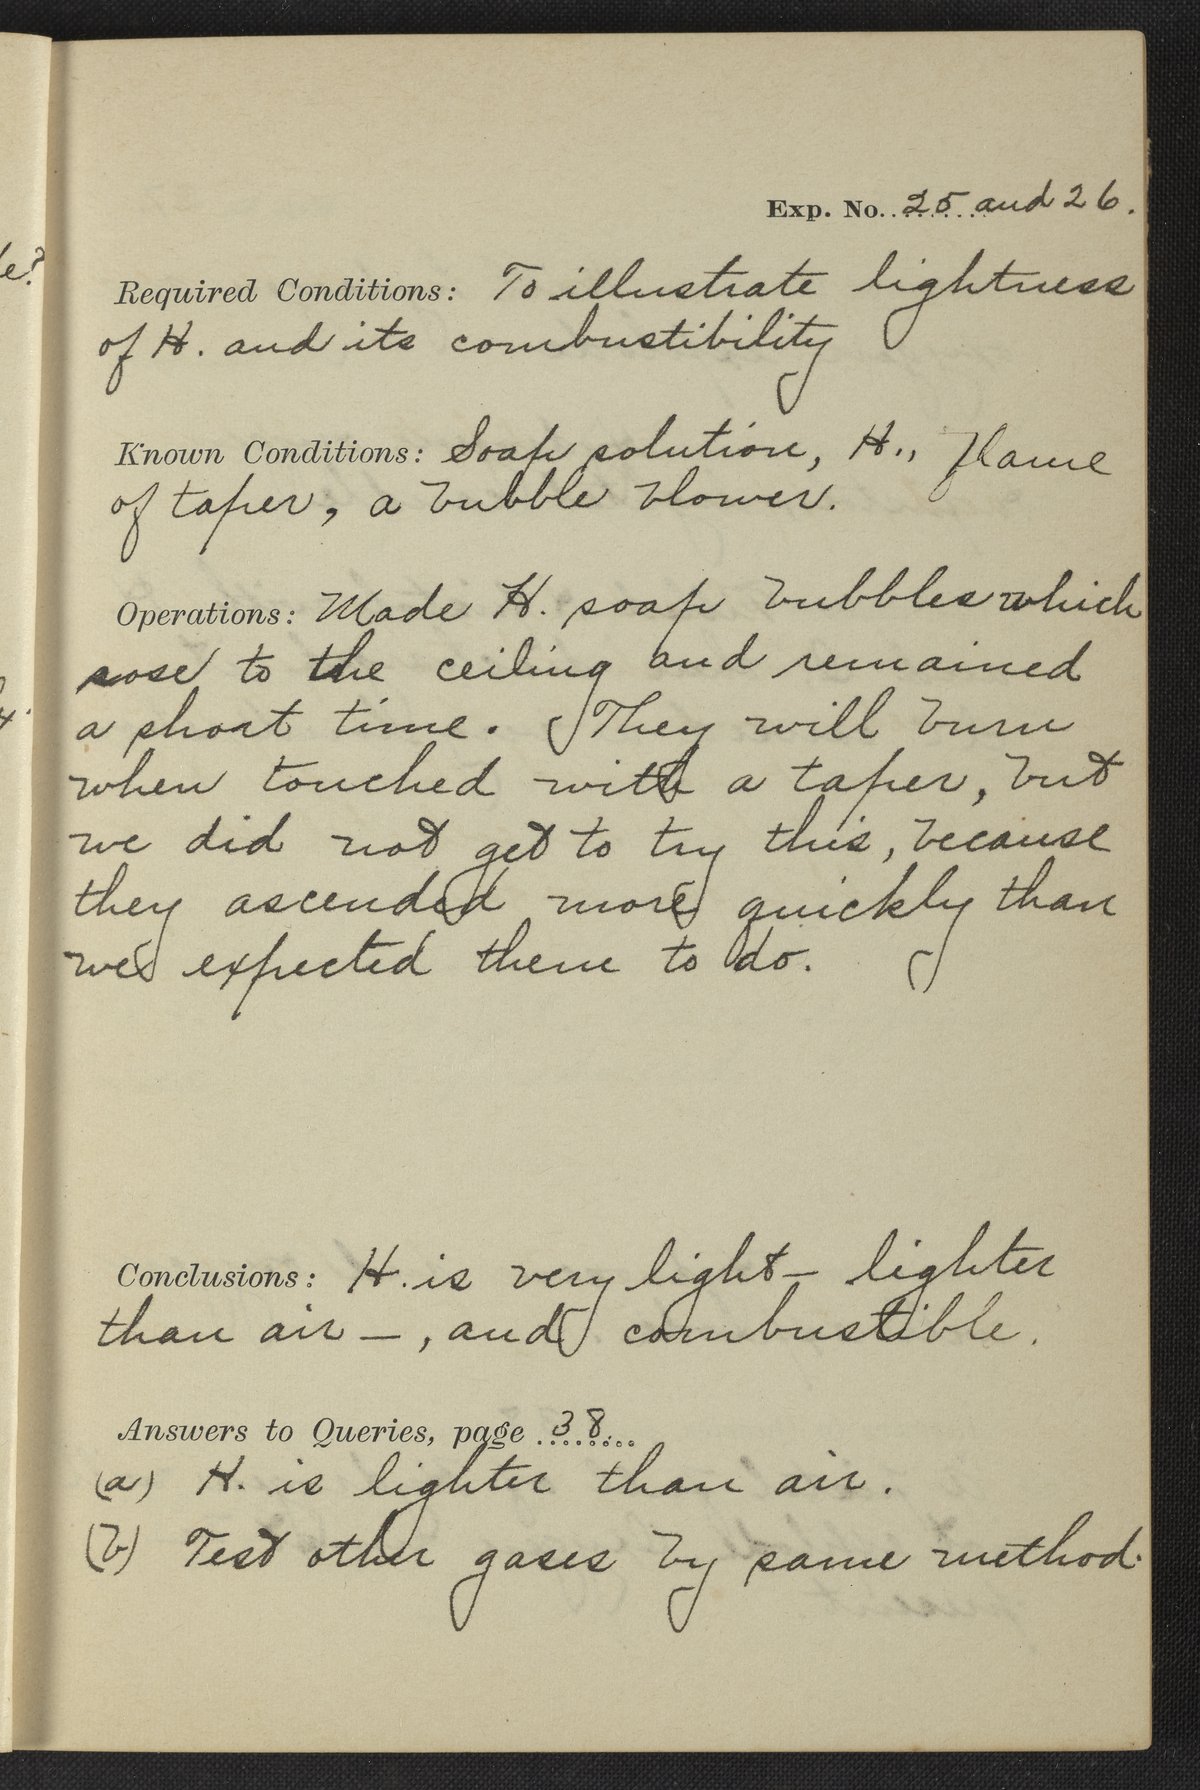 Exp. No. 25 and 26.
Required Conditions: To illustrate lightness
of H. and its combustibility
Known Conditions: Soap solution, H., Flame
of taper, a bubble blower.
Operations: Made H. soap bubbles which
rose to the ceiling and remained
a short time. They will burn
when touched with a taper, but
we did not get to try this, because
they ascended more quickly than
we expected them to do.
Conclusions: H. is very light — lighter
than air —, and combustible.
Answers to Queries, page 38
(a) H. is lighter than air.
(b) Test other gases by same method.